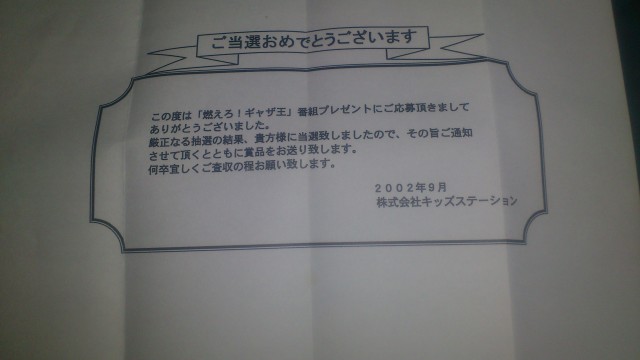 ご当選おめでとうございます
この度は「燃えろ！ギャザ王」番組プレゼントにご応募頂きまして
ありがとうございました。
厳正なる抽選の結果、貴方様に当選致しましたので、その旨ご通知
させて頂くとともに賞品をお送り致します。
何卒宜しくご査収の程お願い致します。
２００２年９月
株式会社キッズステーション